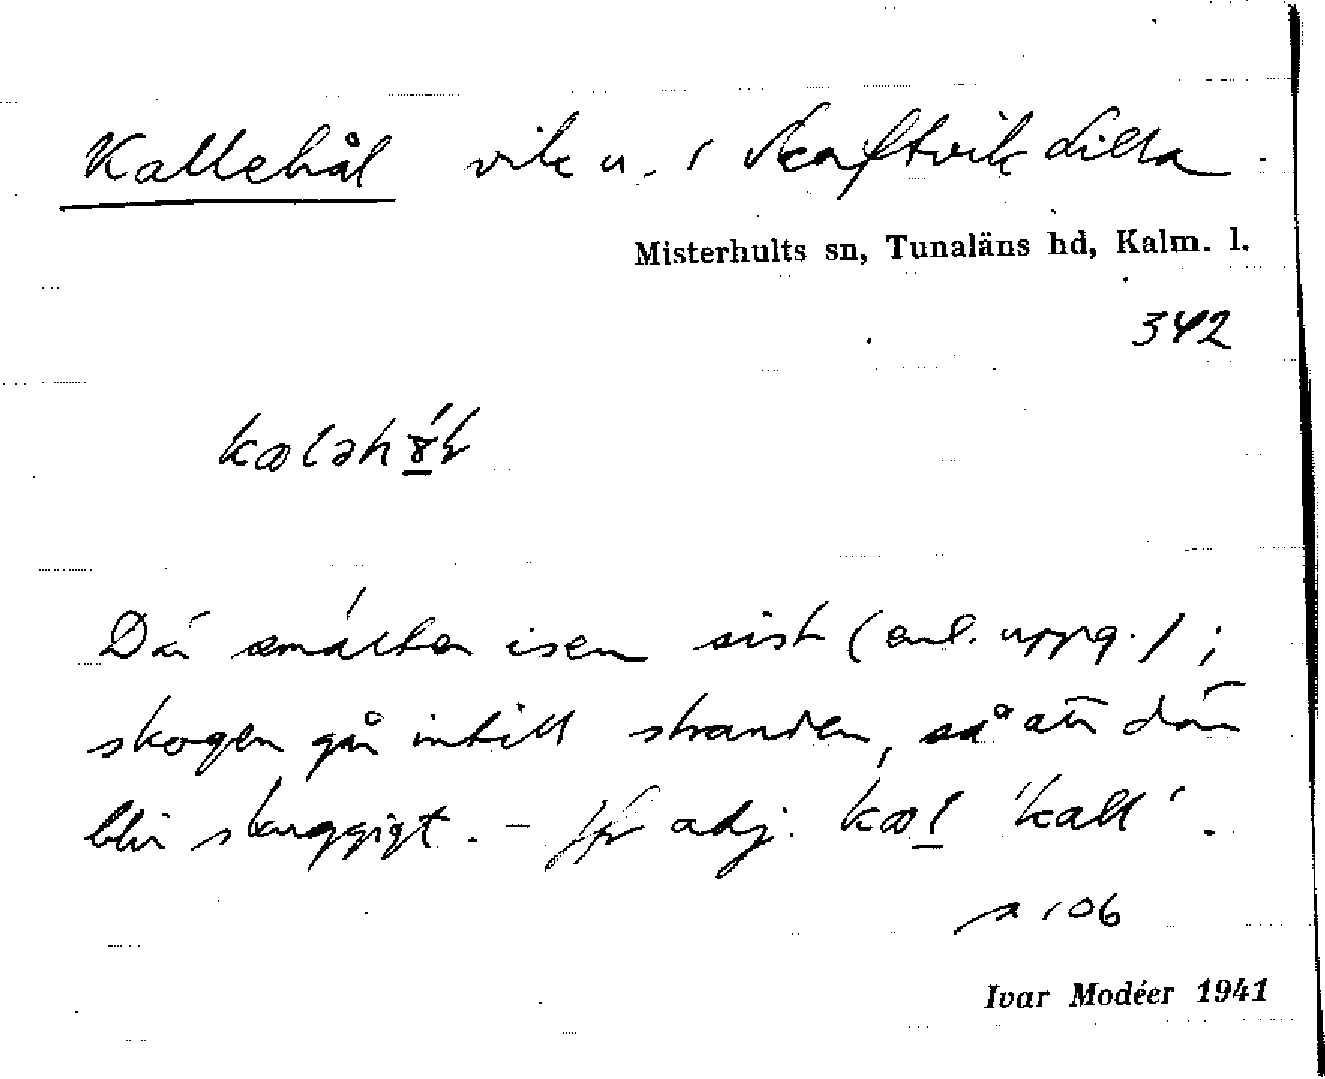 Kallehål vik u. i Skaftvik Lilla
Misterhults sn, Tunaläns hd, Kalm. l.
342
Där smälter isen sist (enl. uppg.);
skogen går intill stranden, så att där
blir skuggigt. – Jfr adj. kal 'kall'.
s 106
Ivar Modéer 1941